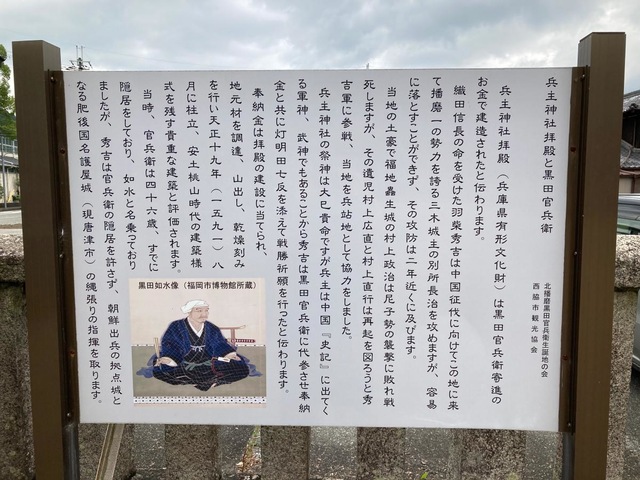 兵主神社拝殿と黒田官兵衛
北播磨黒田官兵衛生誕地の会
西脇市観光協会
兵主神社拝殿（兵庫県有形文化財）は黒田官兵衛寄進の
お金で建造されたと伝わります。
織田信長の命を受けた羽柴秀吉は中国征代に向けてこの地に来
て播磨一の勢力を誇る三木城主の別所長治を攻めますが、容易
に落とすことができず、その攻防は二年近くに及びます。
当地の土豪で福地蟲生城の村上政治は尼子勢の襲撃に敗れ戦
死しますが、その遺児村上広直と村上直行は再起を図ろうと秀
吉軍に参戦、当地を兵站地として協力をしました。
兵主神社の祭神は大巳貴命ですが兵主は中国『史記』に出てく
る軍神、武神でもあることから秀吉は黒田官兵衛に代参させ奉納
金と共に灯明田七反を添えて戦勝祈願を行ったと伝わります。
奉納金は拝殿の建設に当てられ、
地元材を調達、山出し、乾燥刻み
を行い天正十九年（一五九一）八
月に柱立、安土桃山時代の建築様
式を残す貴重な建築と評価されます。
当時、官兵衛は四十六歳、すでに
隠居をしており、如水と名乗っており
ましたが、秀吉は官兵衛の隠居を許さず、朝鮮出兵の拠点城と
なる肥後国名護屋城（現唐津市）の縄張りの指揮を取ります。
黒田如水像（福岡市博物館所蔵）